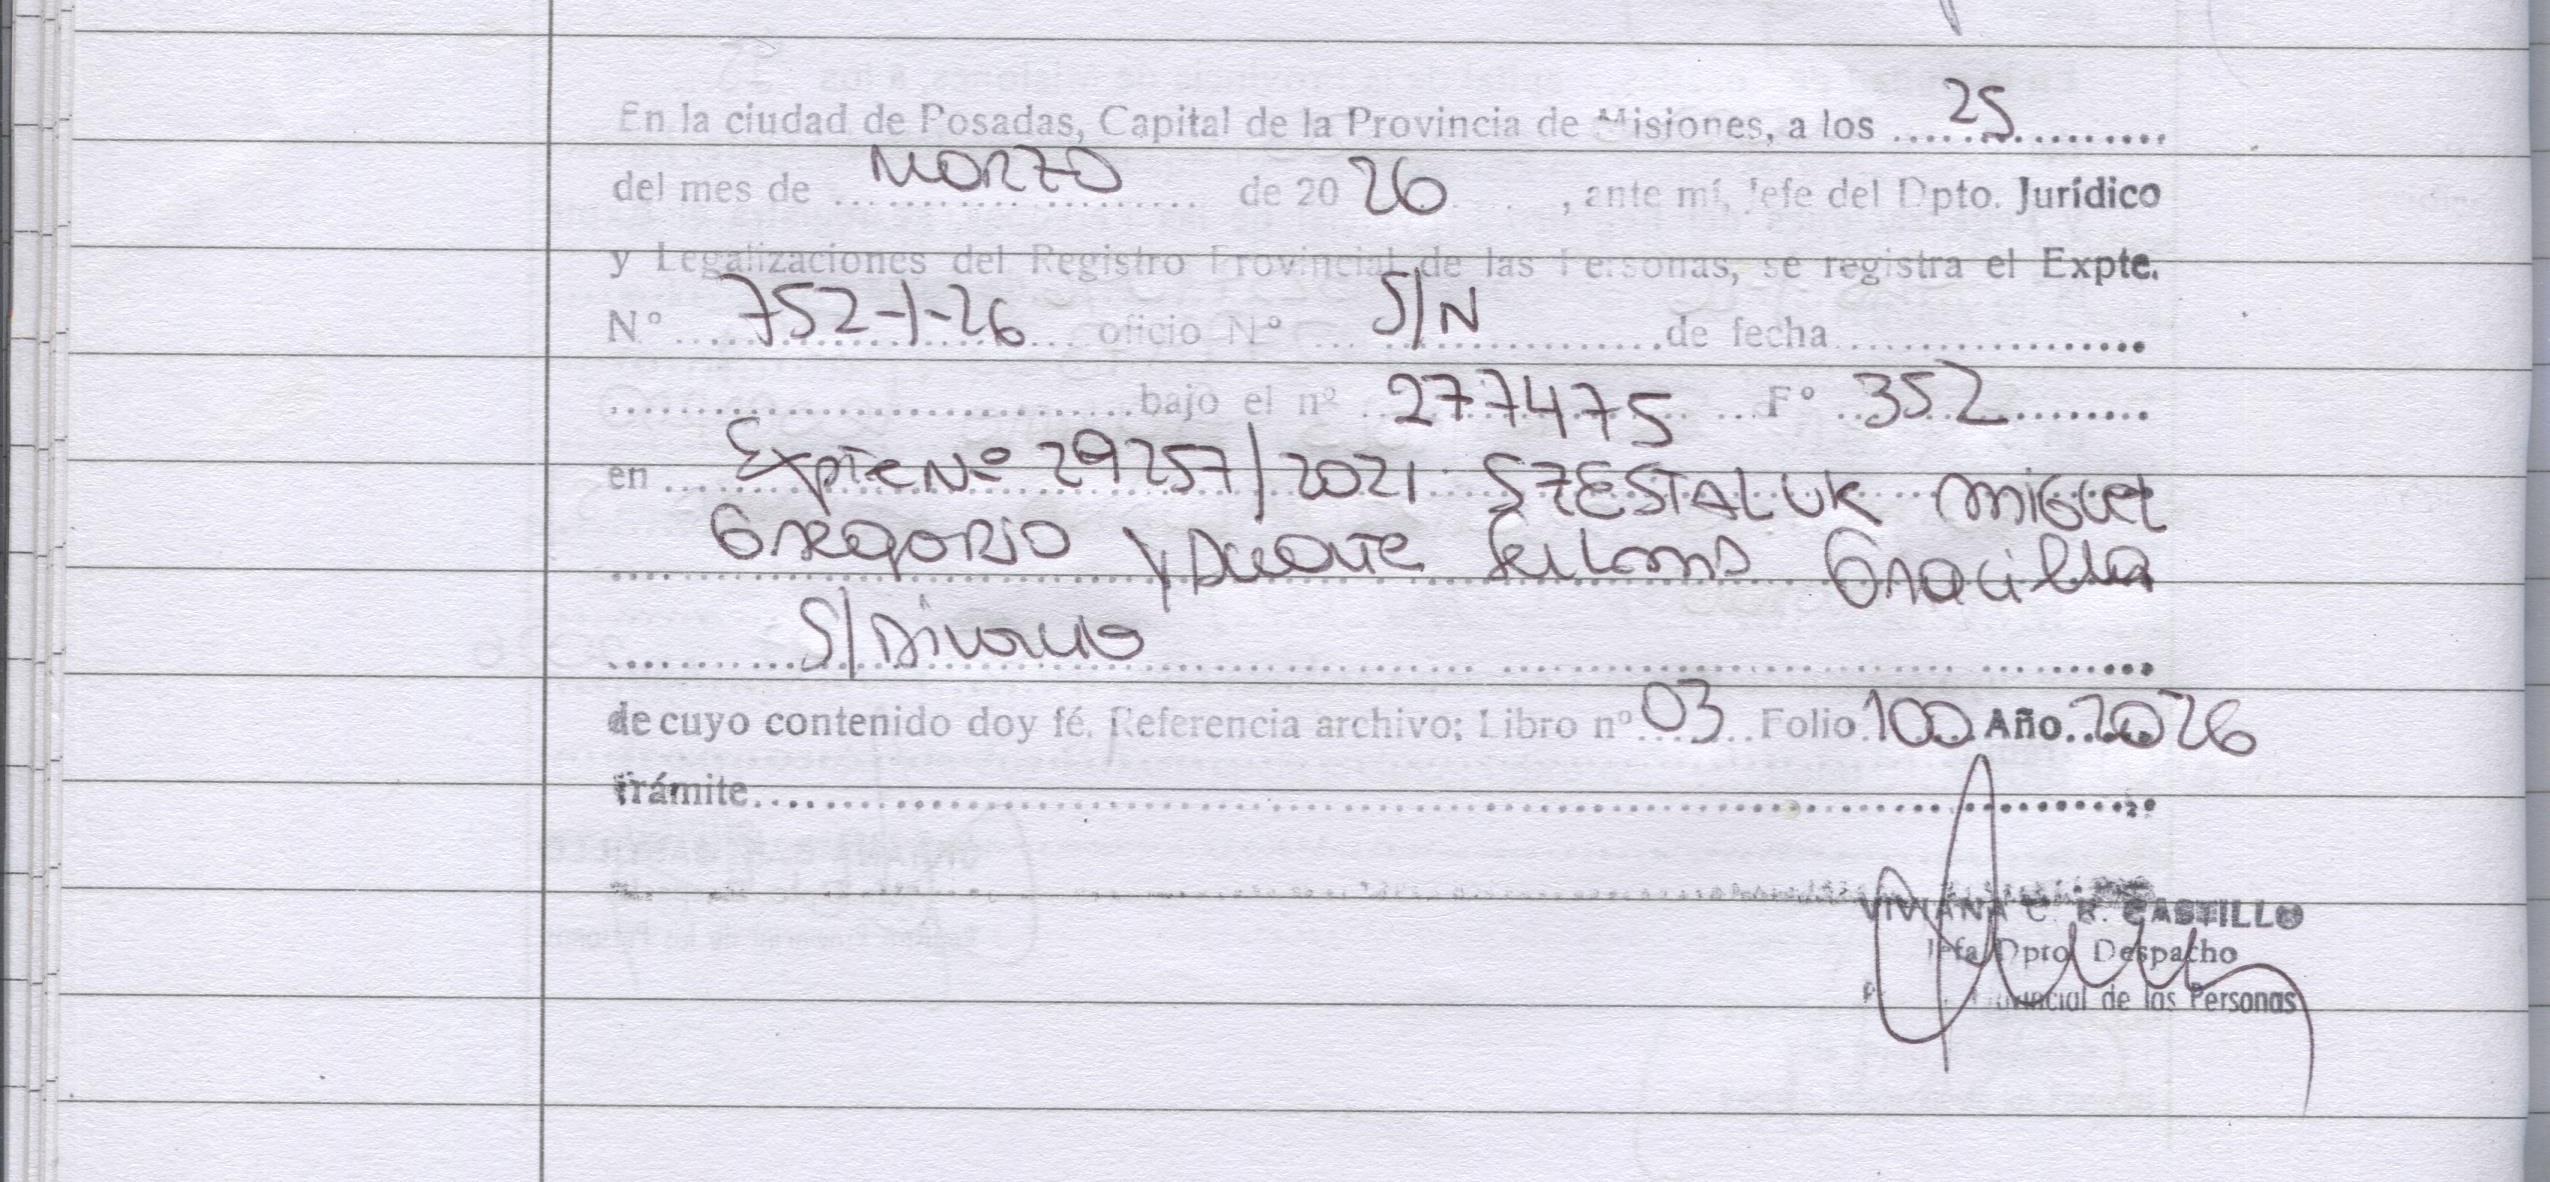 En la ciudad de Posadas, Capital de la Provincia de Misiones, a los ....25.........
del mes de ....Marzo.... de 2026 , ante mí, Jefe del Dpto. Jurídico
y Legalizaciones del Registro Provincial de las Personas, se registra el Expte.
N° ....752-1-26.... oficio N° ....S/N.... de fecha....................
.............................bajo el nº ....277475.... F° ..352.........
en ....Expte Nº 29257/2021 SZESTALUK Miguel
Gregorio y Duarte Graciela
S/Divorcio
de cuyo contenido doy fé. Referencia archivo: Libro nº 03 Folio 100 Año 2026
trámite....................
VIVIANA C. R. CASTILLO
Jefa Dpto Despacho
Provincial de las Personas